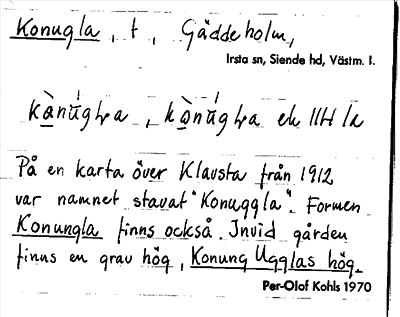 Konugla, t, Gäddeholm,
Irsta sn, Siende hd, Västm. l.
På en karta över Klavsta från 1912
var namnet stavat "Konuggla". Formen
Konungla finns också. Invid gården
finns en grav hög, Konung Ugglas hög.
Per-Olof Kohls 1970